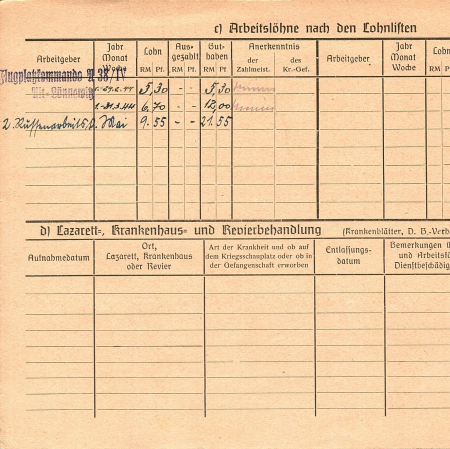 c) Arbeitslöhne nach den Lohnlisten
Arbeitgeber
Jahr Monat Woche
Lohn
RM Pf.
Aus-gezahlt
RM Pf.
Gut-haben
RM Pf.
Anerkenntnis
der Zahlmeist.
des Kr.-Gef.
Arbeitgeber
Jahr Monat Woche
Lohn
RM
Flugplatzkommando
5,30 - - 5,30
1.-31.3.44 6.70 - - 12,00
2. Russenarbeits Mai 9.55 - - 21.55
d) Lazarett-, Krankenhaus- und Revierbehandlung
(Krankenblätter, D. B.-Verb
Aufnahmedatum
Ort,
Lazarett, Krankenhaus
oder Revier
Art der Krankheit und ob auf
dem Kriegsschauplatz oder ob in
der Gefangenschaft erworben
Entlassungs-
datum
Bemerkungen
und Arbeitsf
Dienstbeschädig